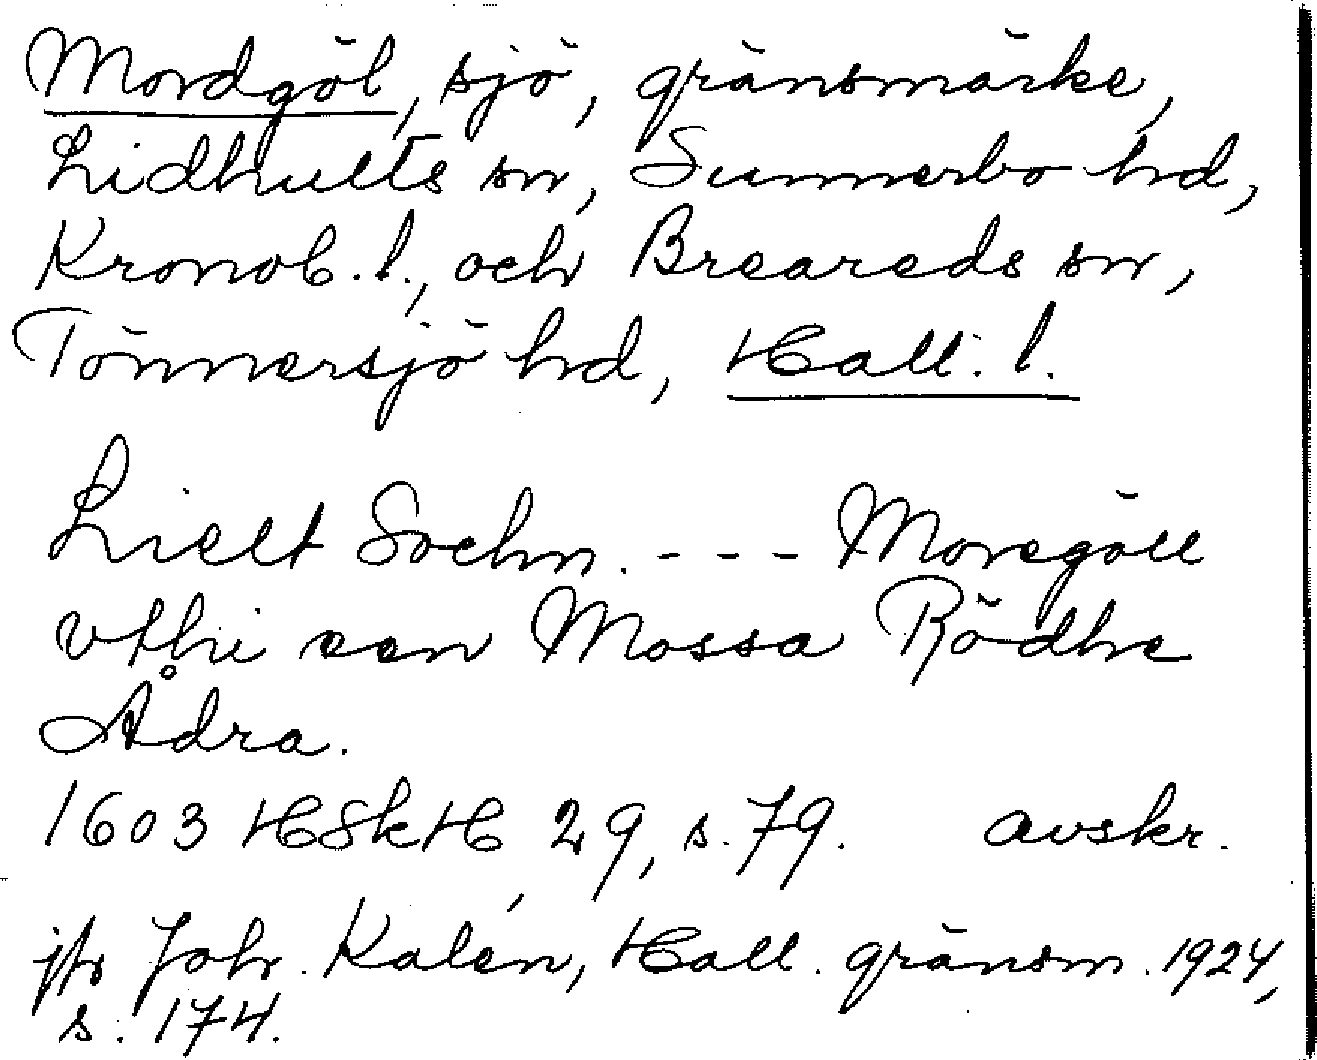 Mordgöl, sjö, gränsmärke,
Lidhults sn, Sunnerbo hd,
Kronob. l., och Breareds sn,
Tönnersjö hd, Hall. l.
Lielt Sochn. - - - Moregöll
vthi een Mossa Rödhe
Ådra.
1603 HSkH 29, s. 79. avskr.
jfr Joh. Kalén, Hall. gränsm. 1924,
s. 174.